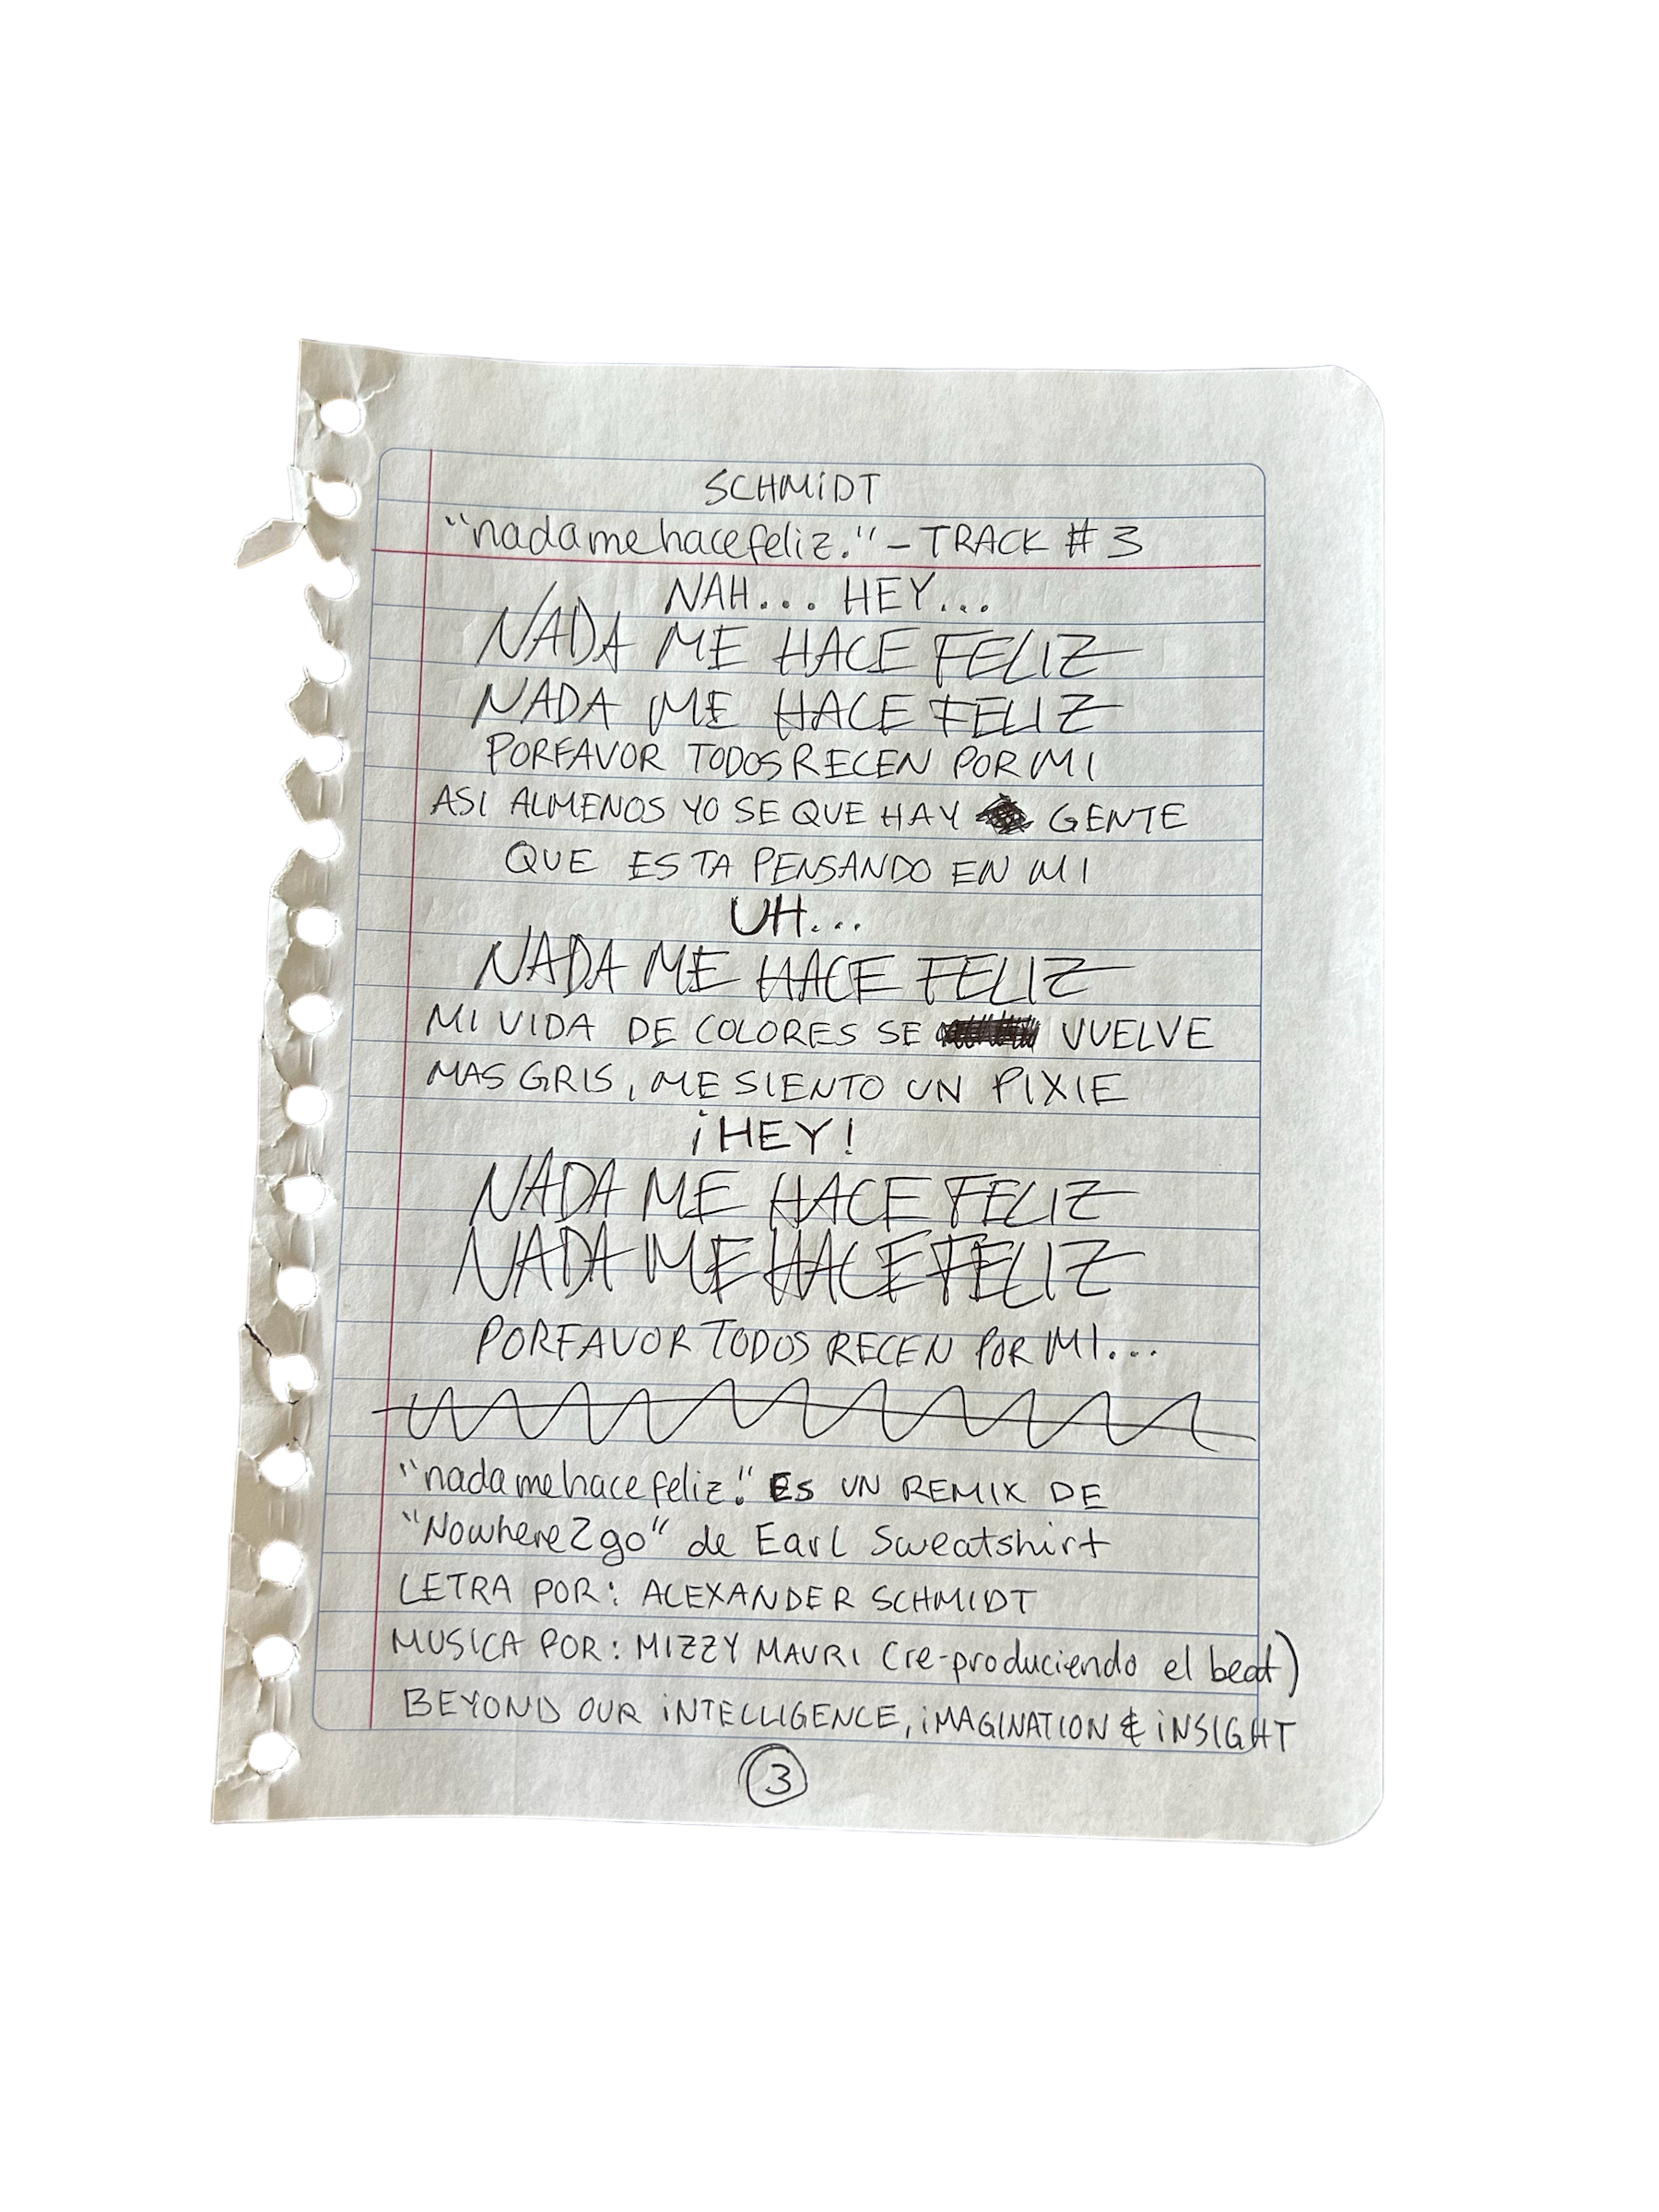 SCHMiDT
"nadamehacefeliz." - TRACK #3
NAH... HEY...
NADA ME HACE FELIZ
NADA ME HACE FELIZ
PORFAVOR TODOS RECEN POR MI
ASI ALMENOS YO SE QUE HAY GENTE
QUE ESTA PENSANDO EN MI
UH...
NADA ME HACE FELIZ
MI VIDA DE COLORES SE VUELVE
MAS GRIS, ME SIENTO UN PIXIE
¡HEY!
NADA ME HACE FELIZ
NADA ME HACE FELIZ
PORFAVOR TODOS RECEN POR MI...
"nadamehacefeliz." Es UN REMIX DE
"Nowhere2go" de Earl Sweatshirt
LETRA POR: ALEXANDER SCHMIDT
MUSICA POR: MIZZY MAURI (re-produciendo el beat)
BEYOND OUR iNTELLIGENCE, iMAGINATION & iNSIGHT
3